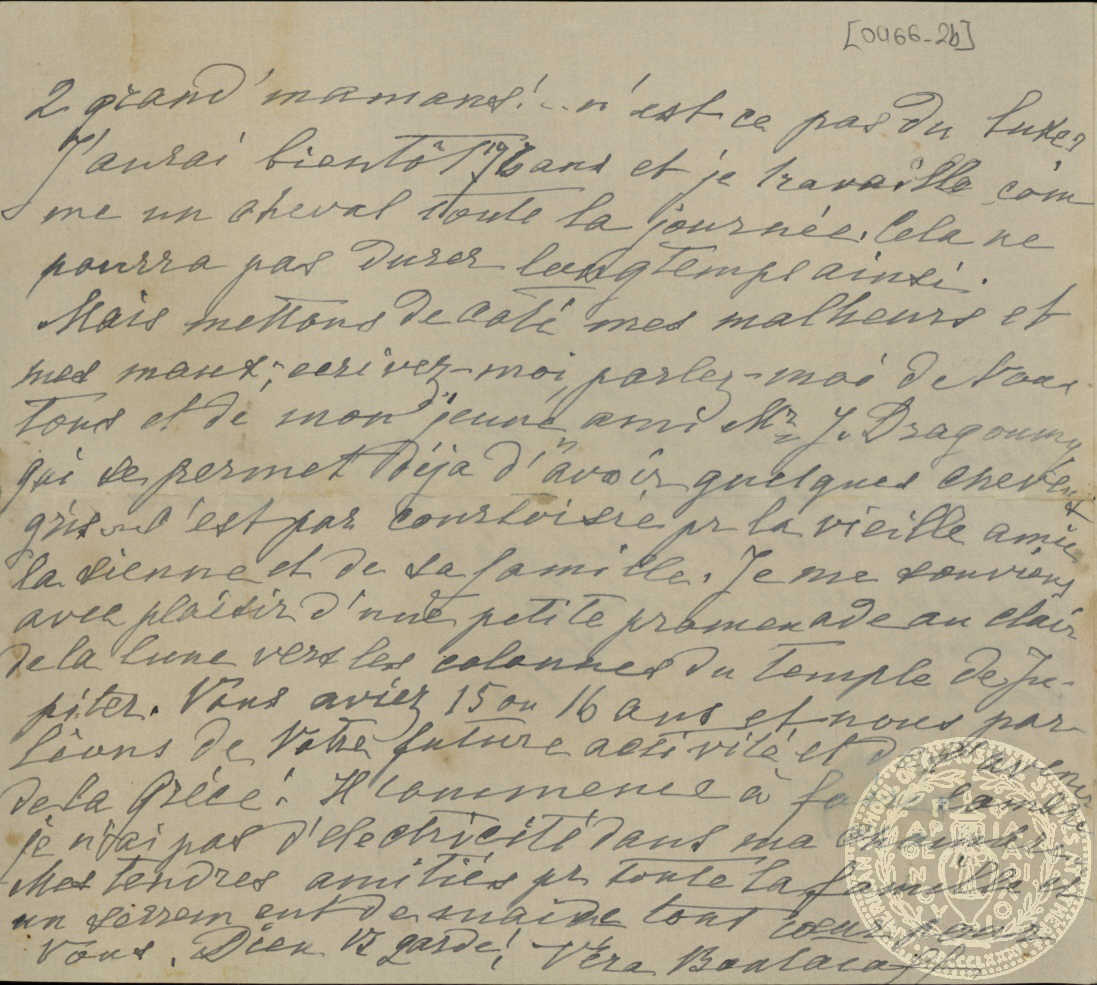 [0466-2b]
2 grand'mamans!... n'est ce pas du luxe?
J'aurai bientôt 76 ans et je travaille com
me un cheval toute la journée. Cela ne
pourra pas durer longtemps ainsi.
Mais mettons de coté mes malheurs et
mes maux; ecrivez-moi, parlez-moi de Vous
tous et de mon "jeune" ami Mr J. Dragoumy
qui se permet déja d'avoir quelques cheveux
gris c'est par courtoisie pr la vieille amie
la sienne et de sa famille. Je me souviens
avec plaisir d'une petite promenade au clair
de la lune vers les colonnes du temple de Ju-
piter. Vous aviez 15 ou 16 ans et nous par-
lions de Votre future activité et de l'avenir
de la Grèce. Il commence à faire sombre
je n'ai pas d'electricité dans ma chambre.
Mes tendres amitiés pr toute la famille et
un serrement de main de tout coeur pour
Vous. Dieu Vs garde! Véra